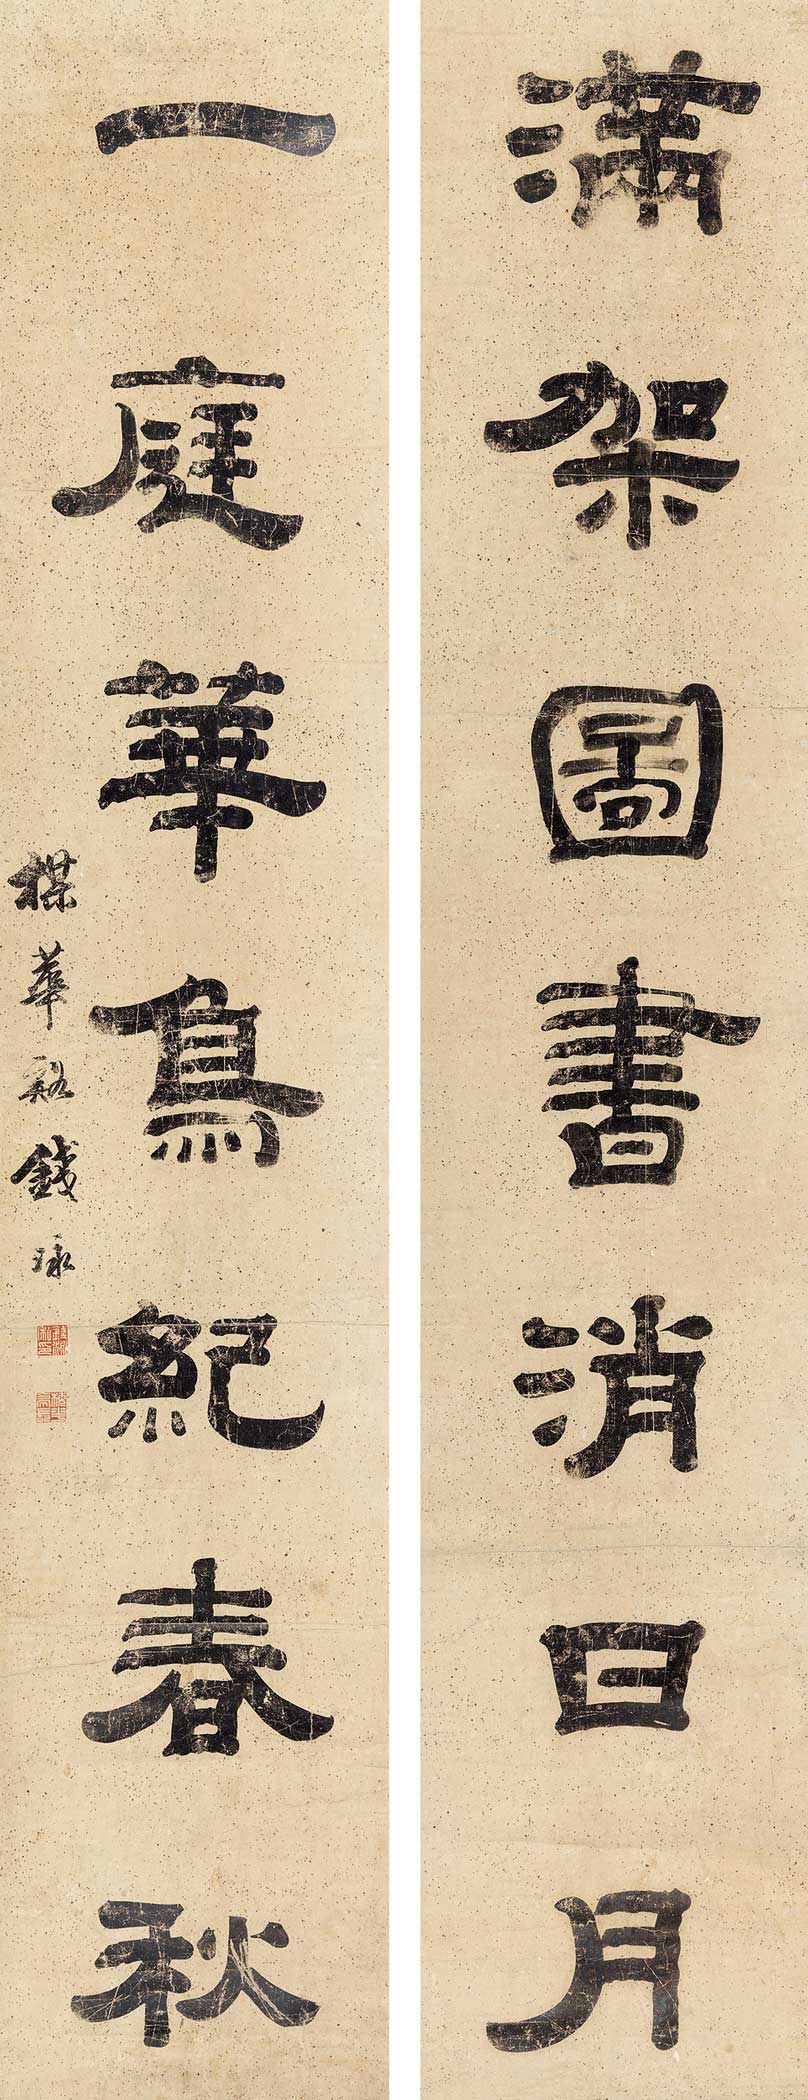 滿架圖書消日月
一庭華鳥紀春秋
楳華谿錢泳